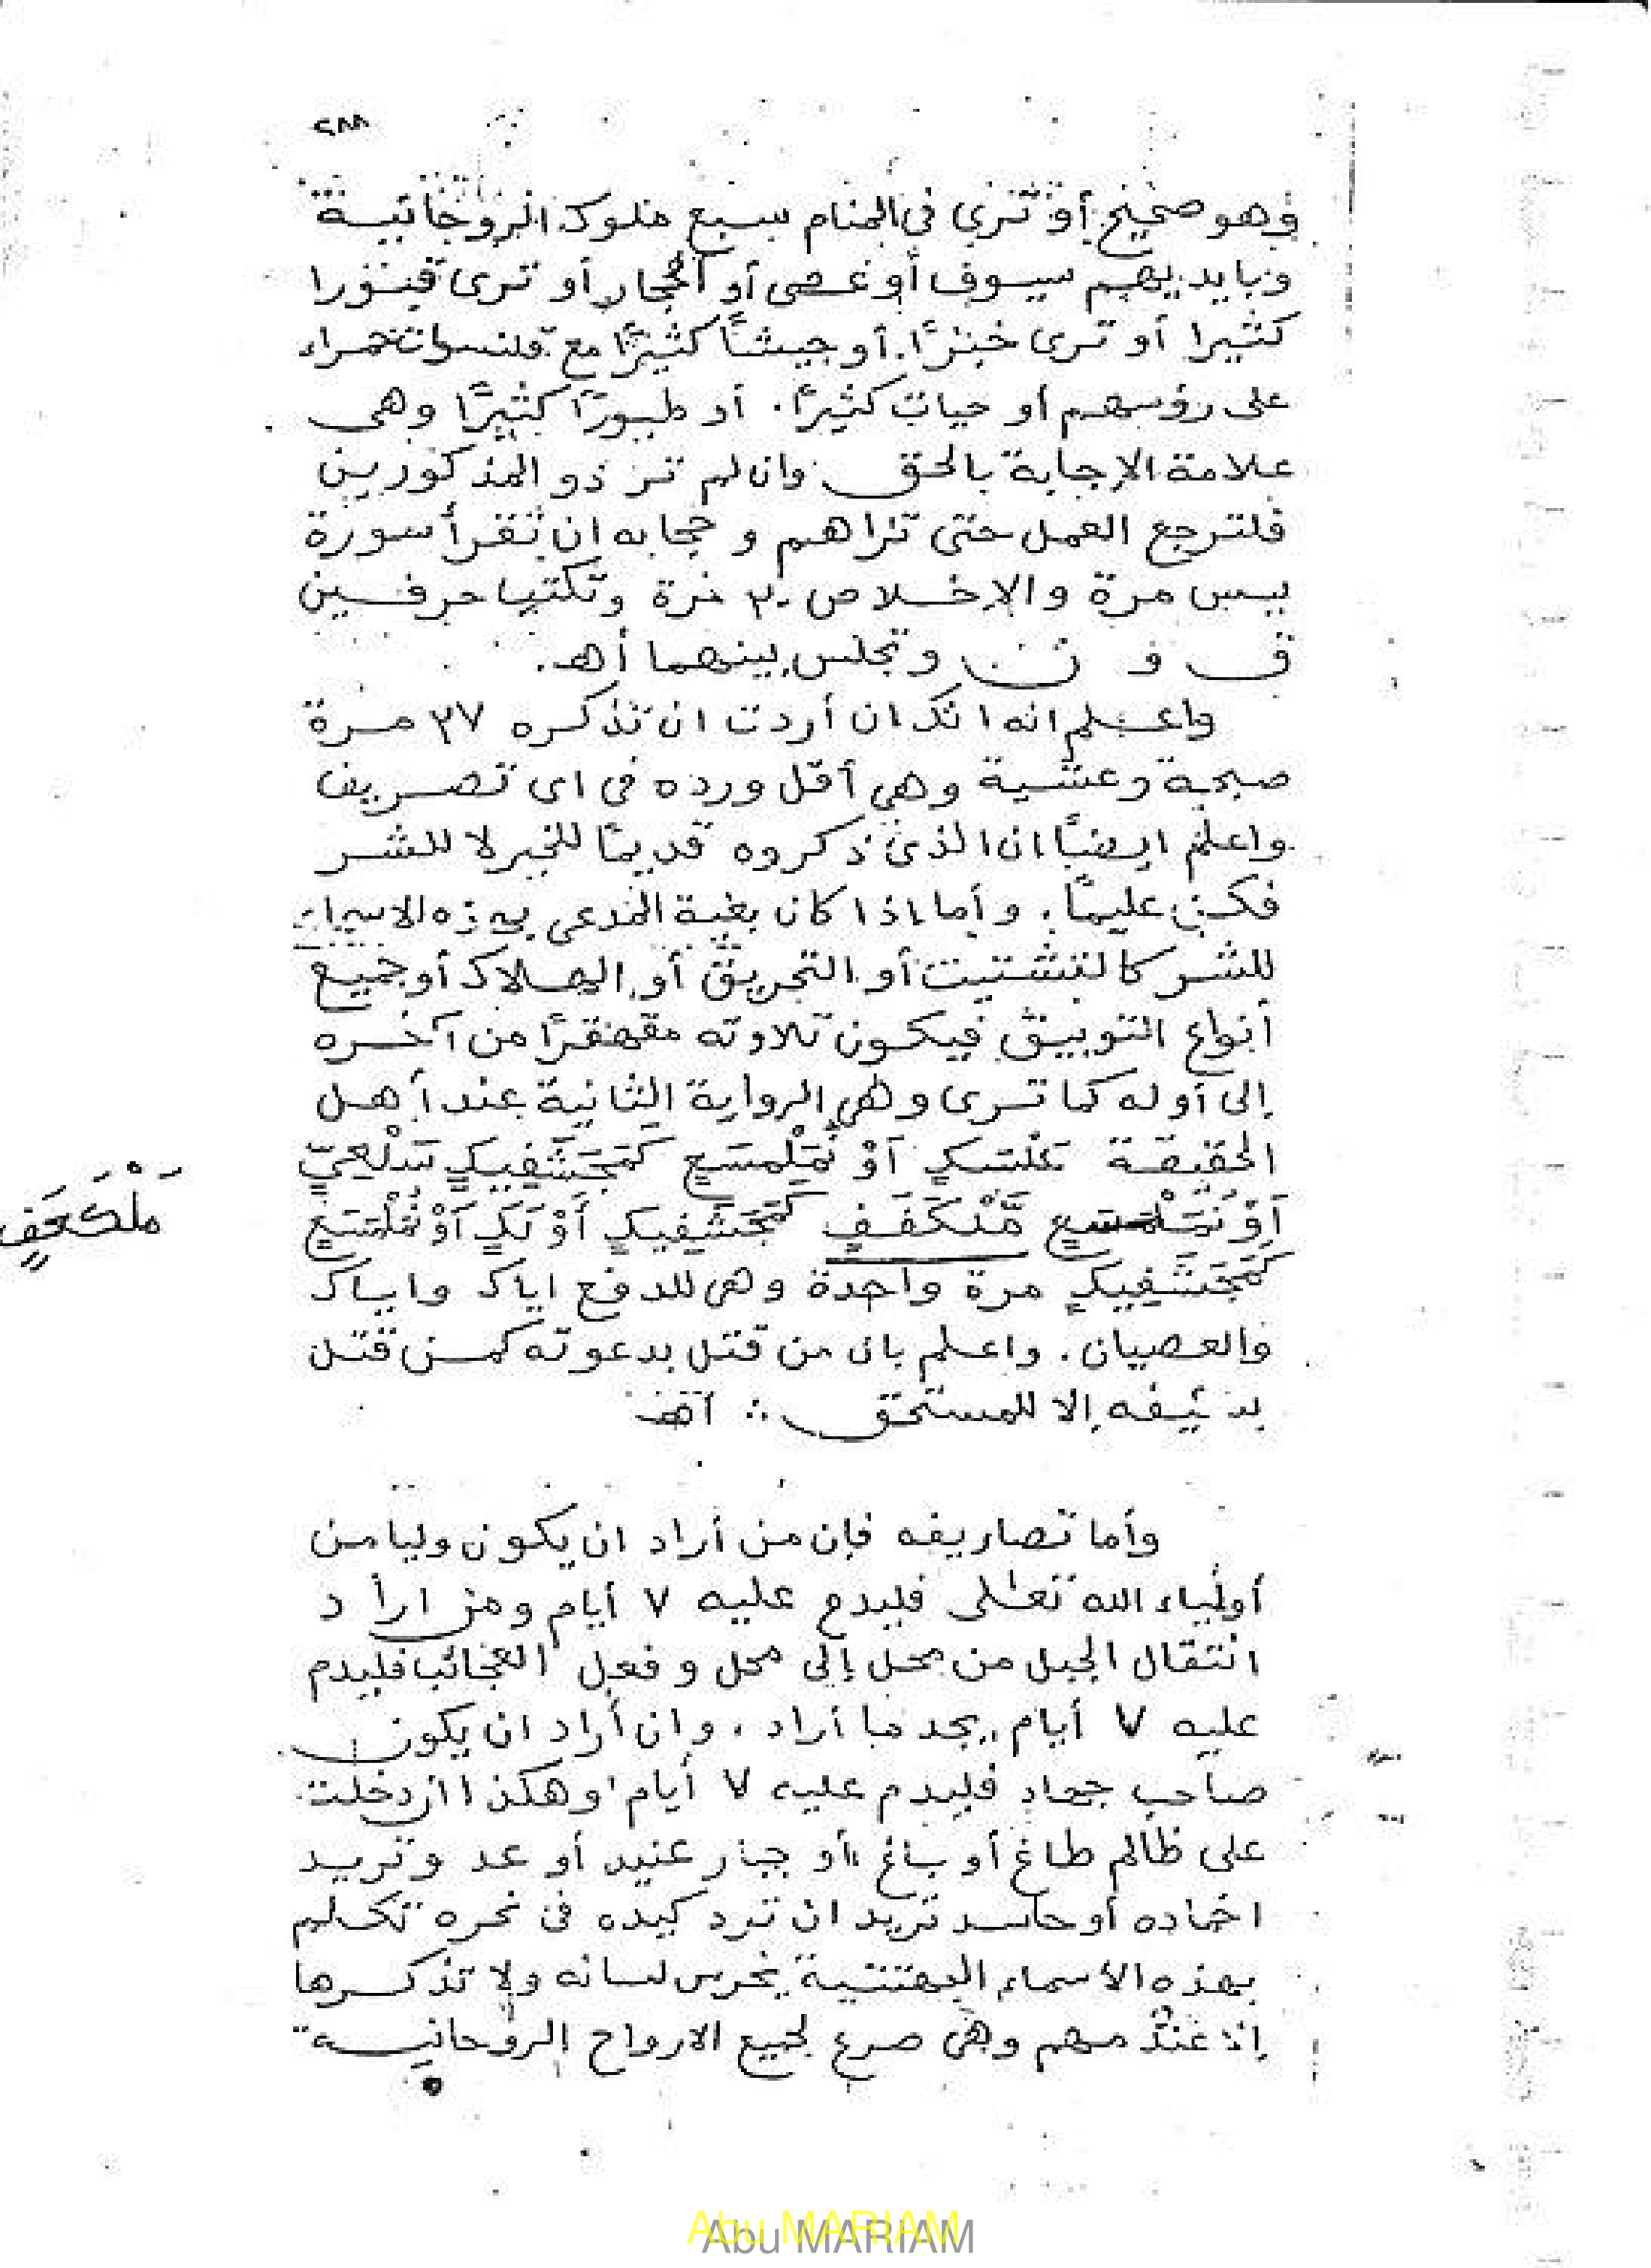 ٢٨٨
وهو صحيح أو ترى في المنام سبع ملوك الروحانية
وبايديهم سيوف أو عصى أو أحجار أو ترى قبورا
كثيرا أو ترى خبزًا. أو جيشًا كثيرًا مع قلنسوات حمراء
على رؤسهم أو حيات كثيرًا. أو طيورًا كثيرًا وهى
علامة الإجابة بالحق وان لم تر ذو المذكورين
فلترجع العمل حتى تراهم و حجابه ان تقرأ سورة
يس مرة والإخلاص ٣٠ مرة وتكتب حرفين
ق و ن وتجلس بينهما أهـ.
واعلم انه انك ان أردت ان تذكره ٢٧ مرة
صبحية وعشية وهي أقل ورده في اى تصريف
واعلم ايضًا ان الذى ذكروه قديمًا للخير لا للشر
فكن عليمًا. وأما اذا كان بغية المدعى بهذه الاسماء
للشر كالتشتيت أو التحريق أو الهلاك أو جميع
أنواع التوبيق فيكون تلاوته مقهقرًا من آخره
إلى أوله كما ترى وهي الرواية الثانية عند أهل
الحقيقة
كَمَجَشَفِيكٍ مرة واحدة وهى للدفع اياك واياك
والعصيان. واعلم بان من قتل بدعوته كمن قتل
بسيفه إلا للمستحق ∴
وأما تصاريفه فإن من أراد ان يكون وليا من
أولياء الله تعلى فليدم عليه ٧ أيام ومن اراد
انتقال الجبل من محل إلى محل وفعل العجائب فليدم
عليه ٧ أيام يجد ما أراد. وان أراد ان يكون
صاحب جهاد فليدم عليه ٧ أيام وهكذا ان دخلت
على ظالم طاغ أو باغ أو جبار عنيد أو عد وتريد
اخماده أو حاسد تريد ان ترد كيده فى نحره تكلم
بهذه الأسماء يخرس لسانه ولا تذكرها
إلا عند مهم وهى صرع لجميع الارواح الروحانية
Abu MARIAM